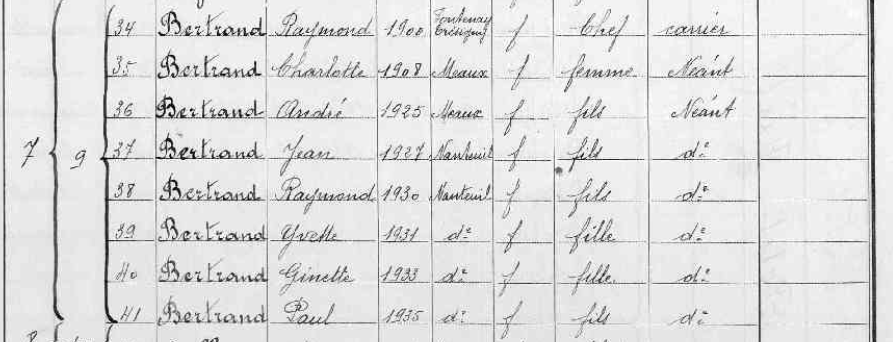 34 Bertrand Raymond 1900 Fontenay Trésigny f Chef carrier
35 Bertrand Charlotte 1908 Meaux f femme Néant
36 Bertrand André 1925 Meaux f fils Néant
7 9 37 Bertrand Jean 1927 Nanteuil f fils d°
38 Bertrand Raymond 1930 Nanteuil f fils d°
39 Bertrand Yvette 1931 d° f fille d°
40 Bertrand Ginette 1933 d° f fille d°
41 Bertrand Paul 1935 d° f fils d°